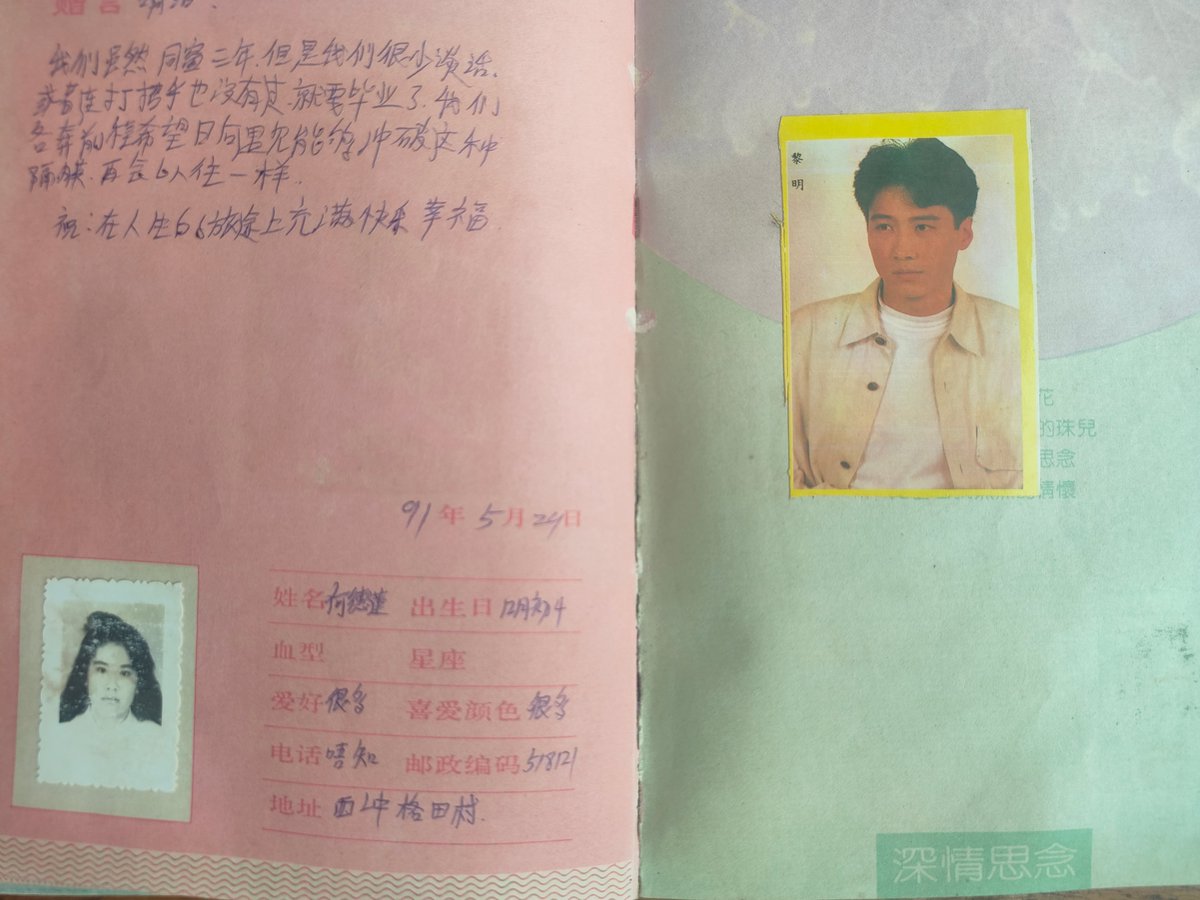 赠言
我们虽然同窗二年.但是我们很少谈话.
连打招乎也没有过.就要毕业了.我们
各奔前程希望日向里见能够冲破这种
隔膜.再会以往一样.
祝:在人生的旅途上充满快乐 幸福.
91年5月24日
姓名何德莲 出生日12月初4
血型 星座
爱好很多 喜爱颜色很多
电话唔知 邮政编码518121
地址 西冲格田村.
黎
明
花
的珠兒
思念
情懷
深情思念